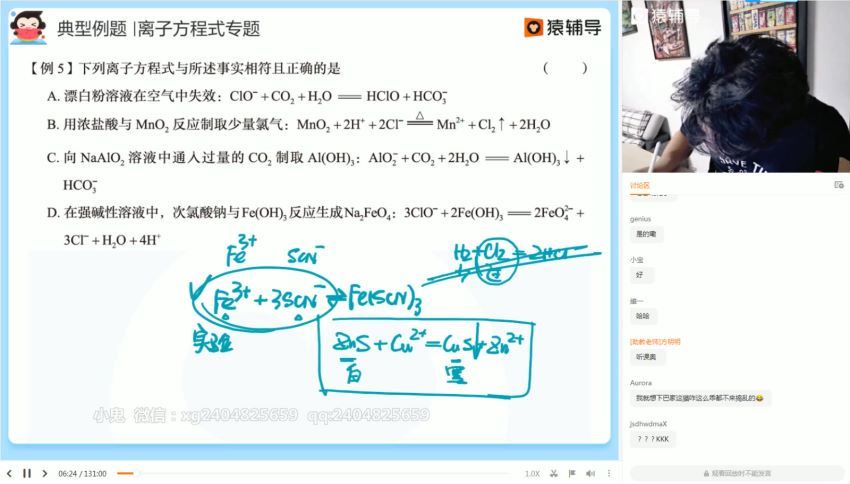 典型例题 |离子方程式专题
猿辅导
猿辅导
【例 5】下列离子方程式与所述事实相符且正确的是 ( )
A. 漂白粉溶液在空气中失效：ClO⁻ + CO₂ + H₂O == HClO + HCO₃⁻
B. 用浓盐酸与 MnO₂ 反应制取少量氯气：MnO₂ + 2H⁺ + 2Cl⁻ ==△== Mn²⁺ + Cl₂↑ + 2H₂O
C. 向 NaAlO₂ 溶液中通入过量的 CO₂ 制取 Al(OH)₃：AlO₂⁻ + CO₂ + 2H₂O == Al(OH)₃↓ +
HCO₃⁻
D. 在强碱性溶液中，次氯酸钠与Fe(OH)₃反应生成Na₂FeO₄：3ClO⁻ + 2Fe(OH)₃ == 2FeO₄²⁻ +
3Cl⁻ + H₂O + 4H⁺
Fe³⁺ SCN⁻
H₂ + Cl₂ = 2HCl
Fe³⁺ + 3SCN⁻ ⇌ Fe(SCN)₃
实验
ZnS + Cu²⁺ = CuS↓ + Zn²⁺
白
小鬼 微信：xg2404825659 qq:2404825659
06:24 / 131:00
1.0X
讨论区
genius
是的嘞
小宝
好
维一
哈哈
[助教老师]方明明
听课奥
Aurora
我就想下巴家这猫咋这么乖都不来捣乱的😂
JsdhwdmaX
？？？KKK
观看回放时不能发言